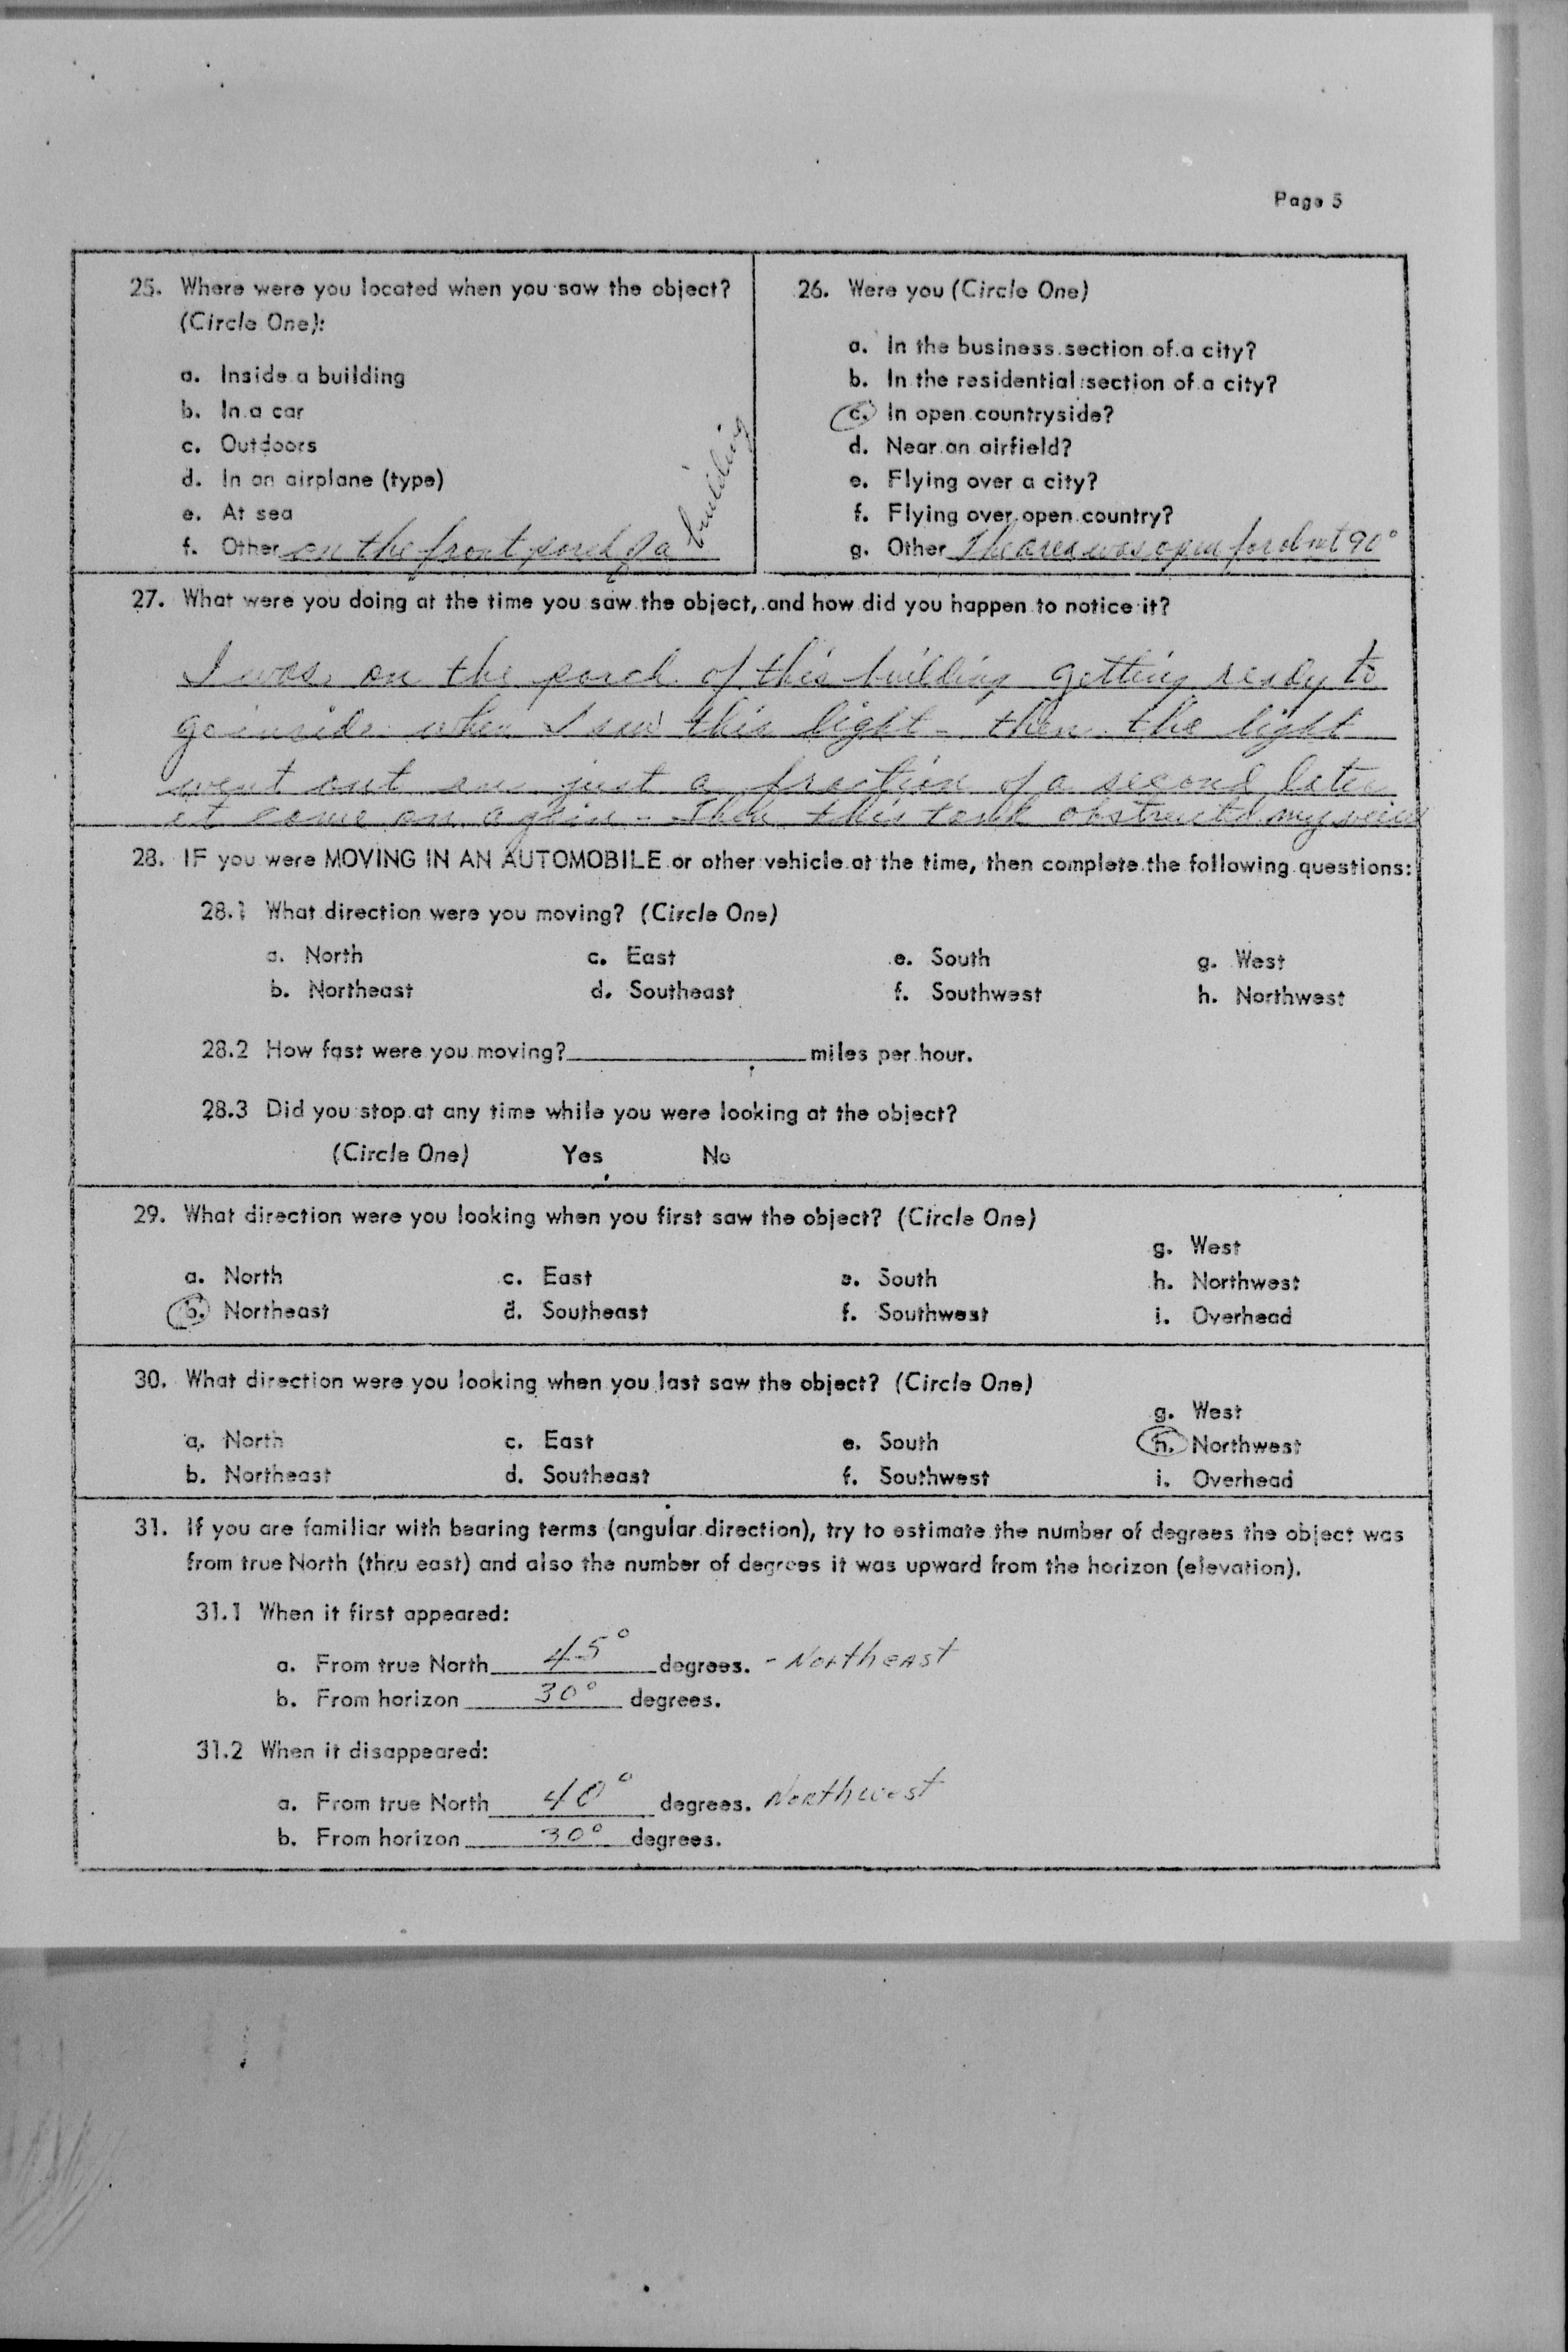 Page 5
25. Where were you located when you saw the object?
(Circle One):
a. Inside a building
b. In a car
c. Outdoors
d. In an airplane (type)
e. At sea
f. Other on the front porch of a building
26. Were you (Circle One)
a. In the business section of a city?
b. In the residential section of a city?
c. In open countryside?
d. Near an airfield?
e. Flying over a city?
f. Flying over open country?
g. Other The area was open for about 90°
27. What were you doing at the time you saw the object, and how did you happen to notice it?
I was on the porch of this building getting ready to
go inside when I saw this light - then the light
went out and just a fraction of a second later
it came on again - Then this tank obstructed my view
28. IF you were MOVING IN AN AUTOMOBILE or other vehicle at the time, then complete the following questions:
28.1 What direction were you moving? (Circle One)
a. North c. East e. South g. West
b. Northeast d. Southeast f. Southwest h. Northwest
28.2 How fast were you moving? miles per hour.
28.3 Did you stop at any time while you were looking at the object?
(Circle One) Yes No
29. What direction were you looking when you first saw the object? (Circle One)
g. West
a. North c. East e. South h. Northwest
b. Northeast d. Southeast f. Southwest i. Overhead
30. What direction were you looking when you last saw the object? (Circle One)
g. West
a. North c. East e. South h. Northwest
b. Northeast d. Southeast f. Southwest i. Overhead
31. If you are familiar with bearing terms (angular direction), try to estimate the number of degrees the object was
from true North (thru east) and also the number of degrees it was upward from the horizon (elevation).
31.1 When it first appeared:
a. From true North 45° degrees. - Northeast
b. From horizon 30° degrees.
31.2 When it disappeared:
a. From true North 40° degrees. Northwest
b. From horizon 30° degrees.